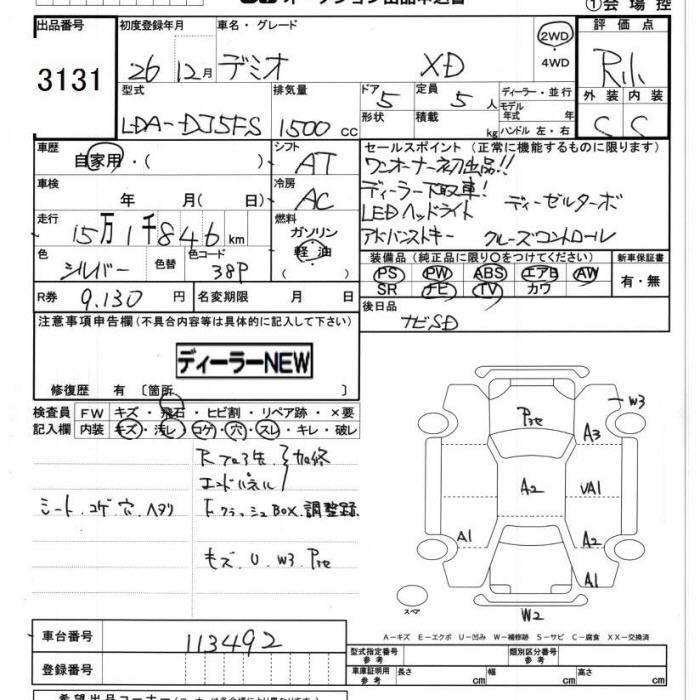 オークション出品申込書
①会場控
出品番号 初度登録年月 車名・グレード 評価点
3131 26 12月 デミオ XD 2WD・4WD R
型式 排気量 ドア 定員 ディーラー・並行 外装 内装
LDA-DJ5FS 1500cc 5 5人 モデル年式 年 C C
形状 積載 kg ハンドル 左・右
車歴 シフト セールスポイント (正常に機能するものに限ります)
自家用・( ) AT ワンオーナー初出品!!
車検 冷房 ディーラー下取車! ディーゼルターボ
年 月( 日) AC LEDヘッドライト
走行 燃料 アドバンストキー クルーズコントロール
15万1千846km ガソリン・軽油
色 色替 色コード 装備品 (純正品に限り○をつけてください) 新車保証書
シルバー 38P PS PW ABS エアB AW 有・無
R券 名変期限 SR ナビ TV カワ
9.130円 月 日 後日品
注意事項申告欄 (不具合内容等は具体的に記入して下さい) ナビSD
ディーラーNEW
修復歴 有 〔箇所 〕
検査員 FW キズ・飛石・ヒビ割・リペア跡・×要
記入欄 内装 キズ・汚レ・コゲ・穴・スレ・キレ・破レ
加修
エンドパネル
シート.コゲ.穴.ヘタリ
クラッシュBOX.調整跡
キズ.U.W3.P3セ
P3セ
W3
A3
A2
VA1
A1
A2
A1
スペア
W2
A-キズ E-エクボ U-凹み W-補修跡 S-サビ C-腐食 XX-交換済
車台番号 113492
型式指定番号 参考 類別区分番号 参考
登録番号 車庫証明用 参考 長さ cm 幅 cm 高さ cm
希望出品コーナー